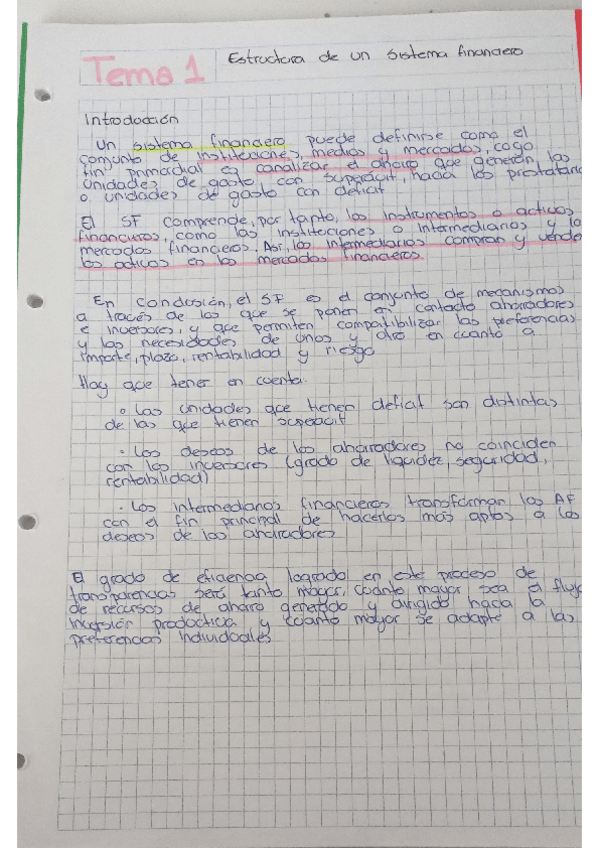 Tema 1
Estructura de un sistema financiero
Introducción
Un sistema financiero puede definirse como el
conjunto de instituciones, medios y mercados, cogo
fin primardial es canalizar el ahorro que generan las
unidades de gasto con superacit, hacia los prestatario
o unidades de gasto con deficit
El SF comprende, por tanto, los instrumentos o activos
financieros, como las instituciones o intermediarios y lo
mercados financieros. Así, los intermediarios compran y vende
los activos en los mercados financieros.
En conclusión, el SF es el conjunto de mecanismos
a través de los que se ponen en contacto ahorradores
e inversores, y que permiten compatibilizar las preferencias
y las necesidades de unos y otro en cuanto a
importe, plazo, rentabilidad y riesgo
Hay que tener en cuenta.
o Las unidades que tienen deficit son distintas
de las que tienen superacit
· Los deseos de los ahorradores no coinciden
con los inversores (grado de liquidez, seguridad,
rentabilidad)
· Los intermediarios financieros transforman los AF
con el fin principal de hacerlos más aptos a los
deseos de los ahorradores
El grado de eficiencia logrado en este proceso de
transparencias será tanto mayor, cuanto mayor sea el flujo
de recursos de ahorro generado y dirigido hacia la
inversión productica y cuanto mayor se adapte a las
preferencias individuales